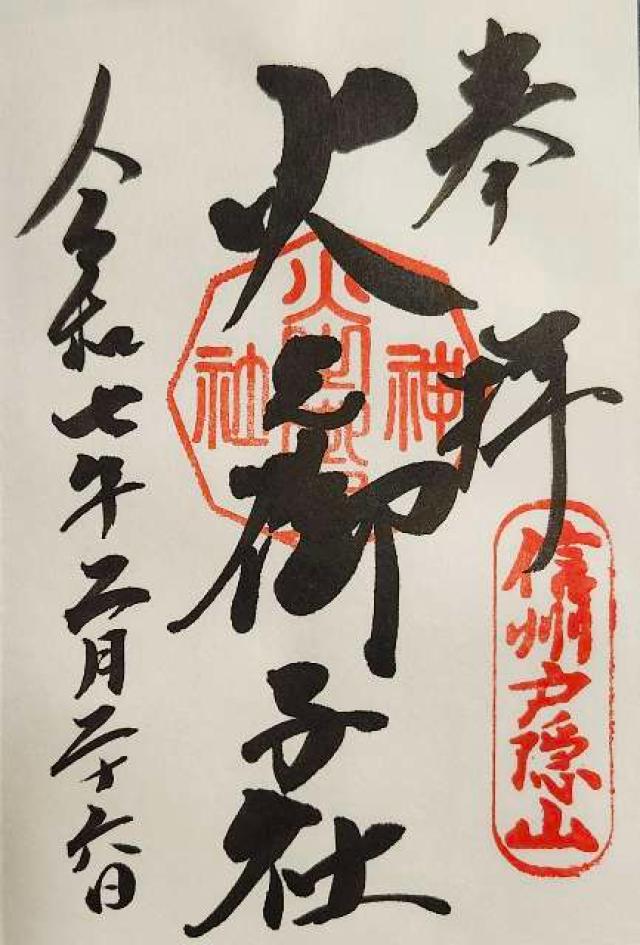 奉拝
信州戸隠山
火之御子社
神社
令和七年二月二十六日